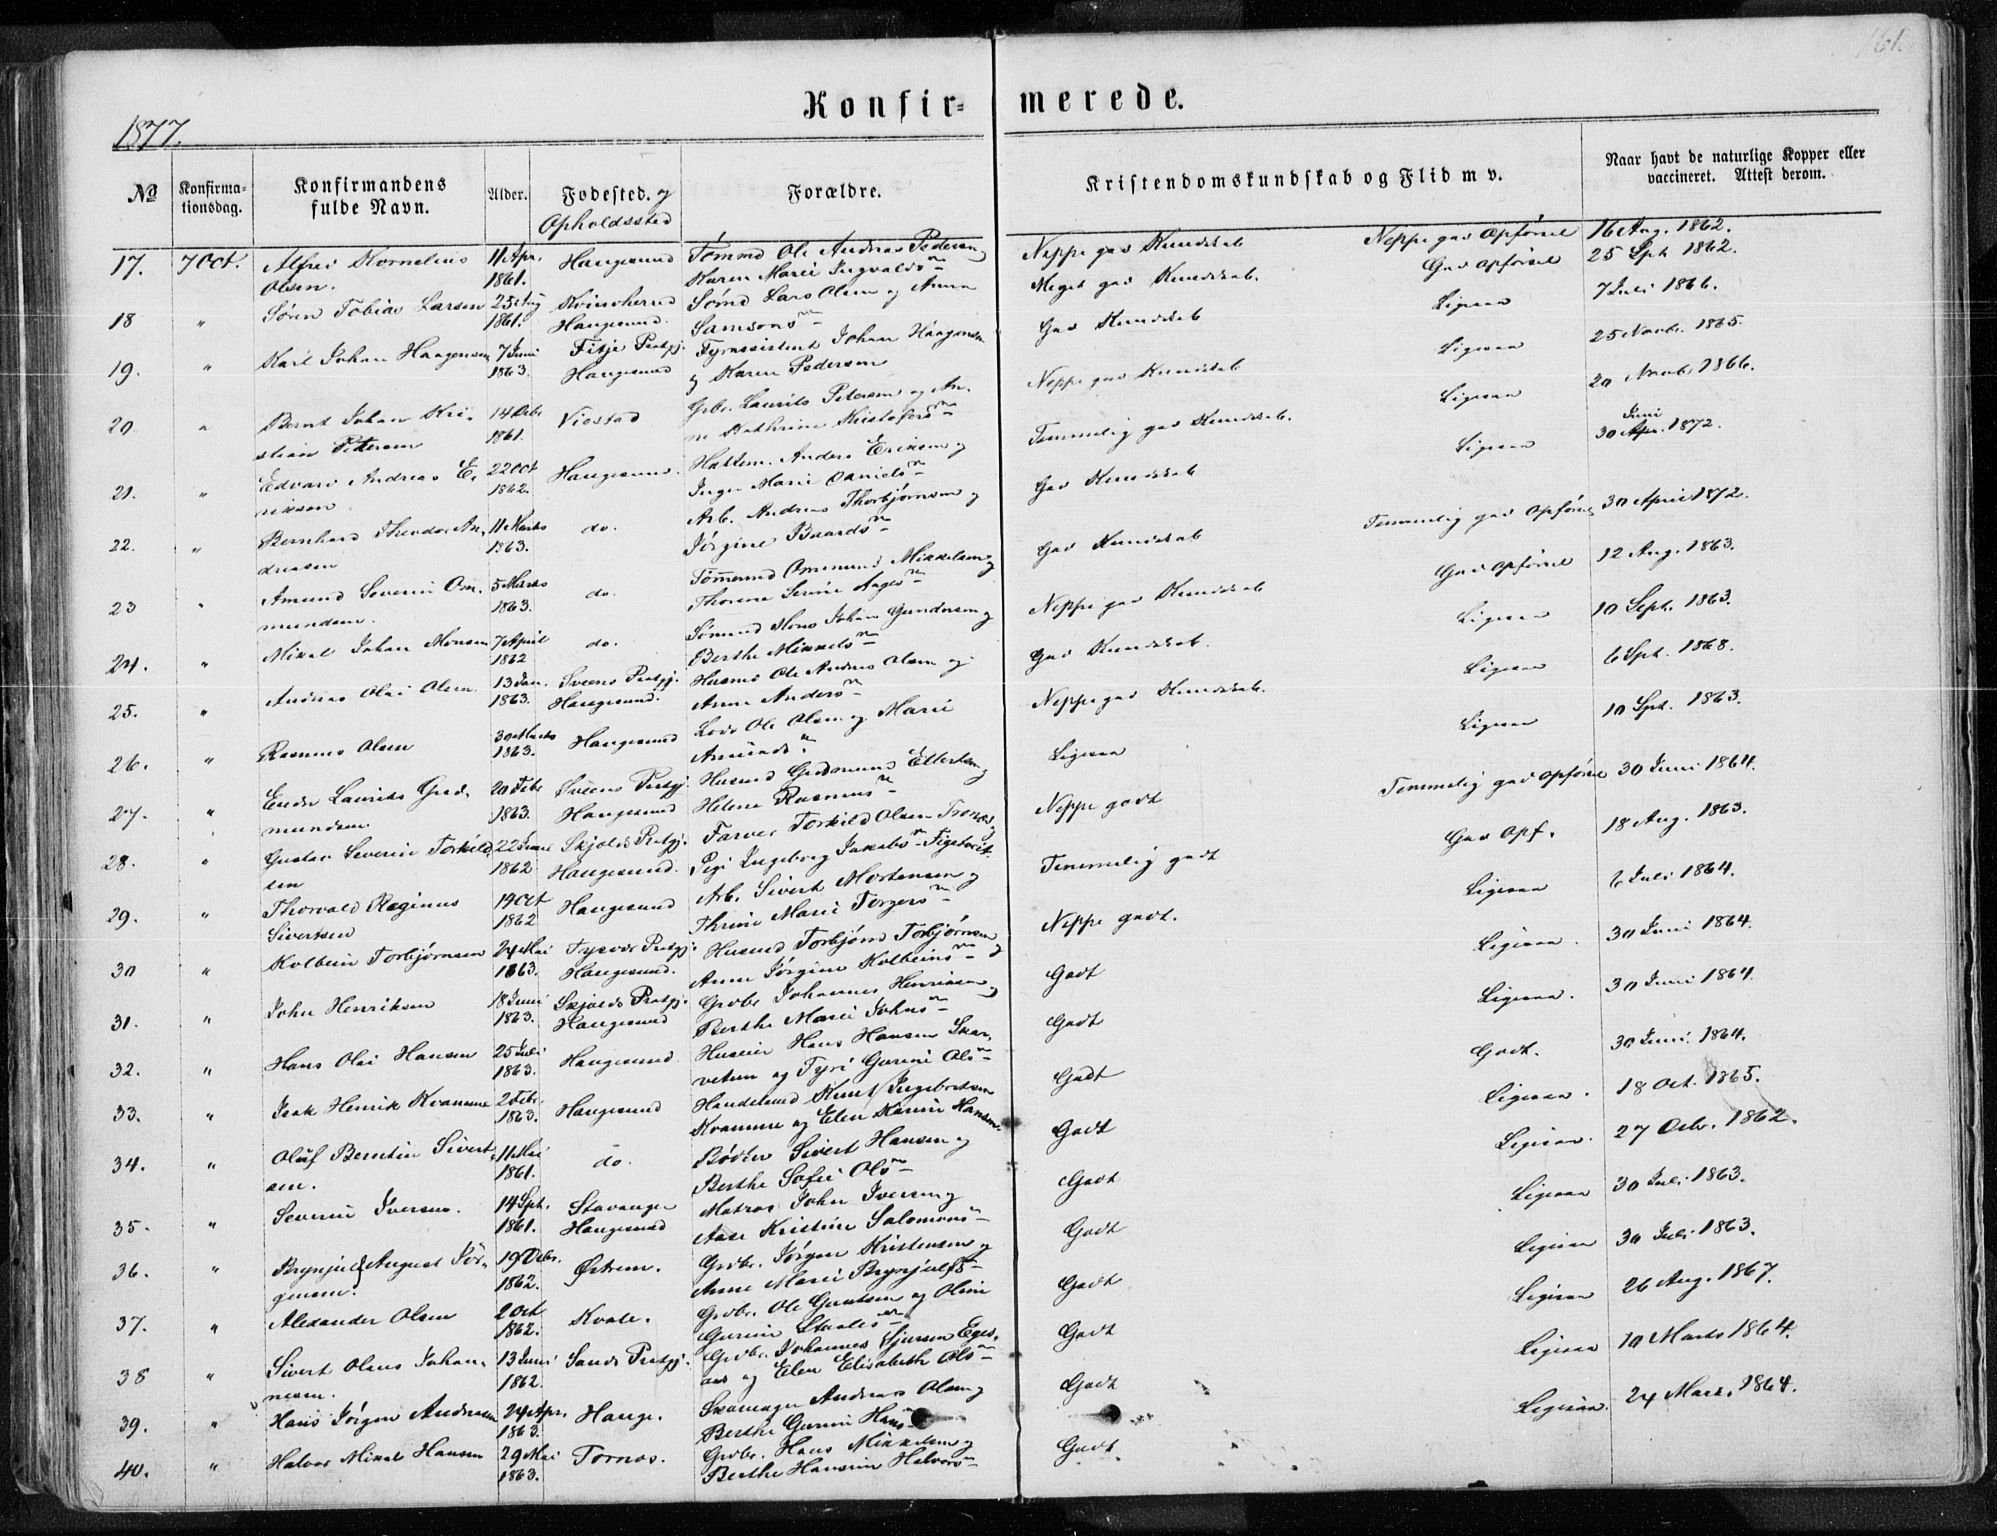 161.
Konfir= merede.
1877.
No Konfirma-tionsdag. Konfirmandens fulde Navn. Alder. Fødested. og Opholdssted Forældre. Kristendomskundskab og Flid m v. Naar havt de naturlige Kopper eller vaccineret. Attest derom.
17. 7 Oct. Alfred Kornelius 11 Apr. Haugesund Tømmd Ole Andreas Pedersen og Neppe god Kundskab Neppe god Opførsel 16 Aug. 1862.
Olsen. 1861. Karen Marie Ingvalds Meget god Kundskab. God Opførsel 25 Spt. 1862.
18 " Søren Tobias Larsen 25 Aug Kvindherred Sømd Lars Olsen og Anna God Kundskab Ligesaa 7 Juli 1866.
1861. Haugesund. Samsons
19. " Karl Johan Haagensen 7 Juni Fitje Prstgj. Fyrassistent Johan Haagensen Neppe god Kundskab Ligesaa 25 Novbr. 1865.
1863. Haugesund og Karen Pedersen
20 " Bernt Johan Kri- 14 Debr Viestad Grbr. Laurits Petersen og An- Temmelig god Kundskab. Ligesaa 20 Novb. 1866.
stian Petersen 1861. ne Kathrine Kristofers
21. " Edvard Andreas E- 22 Oct Haugesund. Hattem. Anders Eriksen og God Kundskab Ligesaa 30 Juni 1872.
riksen 1862. Inger Marie Daniels
22. " Bernhard Theodor An- 11 Marts do. Arb. Andreas Thorbjørnsen og God Kundskab Temmelig god Opførsel 30 April 1872.
dreasen 1863. Jørgine Baards
23 " Amund Severin Om- 5 Marts do. Tømmermd Ommund Mikkelsen og Neppe god Kundskab God Opførsel 12 Aug. 1863.
mundsen. 1863. Thorene Serine Aages
24. " Mikal Johan Monsen 7 April do. Sømand Mons Johan Gundersen og God Kundskab. Ligesaa 10 Sept. 1863.
1862 Berthe Mikkels
25. " Andreas Olai Olsen. 13 Jan. Sveens Prstgj. Husmd Ole Andreas Olsen og Neppe god Kundskab. Ligesaa 6 Spt. 1868.
1863. Haugesund. Anne Anders
26. " Rasmus Olsen 30 Marts Haugesund Lods Ole Olsen og Marie Ligesaa Ligesaa 10 Spt. 1863.
1863. Amunds
27. " Endre Laurits Gud- 20 Febr Sveens Prstgj. Husmd Gudmund Ellertsen og Neppe godt Temmelig god Opførsel 30 Juni 1864.
mundsen 1863. Haugesund Helene Rasmus
28. " Gustav Severin Torkild- 22 Juni Skjolds Prstgj. Farver Torkild Olsen og Temmelig godt God Opf. 18 Aug. 1863.
sen 1862 Haugesund. Pige Ingeborg Jakobs
29. " Thorvald Reginus 19 Oct Haugesund Arb. Sivert Mortensen og Neppe godt. Ligesaa 6 Juli 1864.
Sivertsen 1862 Thrine Marie Torgers
30 " Kolbein Torbjørnsen 24 Mai Tysvær Prstgj. Husmd Torbjørn Torbjørnsen og Godt Ligesaa. 30 Juni 1864.
1863. Haugesund. Anne Jørgine Kolbeins
31. " John Henriksen 18 Juni Skjolds Prstgj. Grdbr. Johannes Henriksen og Godt Ligesaa. 30 Juni 1864.
1863. Haugesund Berthe Marie Johns
32. " Hans Olai Hansen 25 Juli Haugesund Huseier Hans Hansen Skar- Godt Godt. 30 Juni 1864.
1863. vetun og Tyri Gurine Ols
33. " Isak Henrik Kvamme 2 Febr. Haugesund Handelsmd Knut Ingebretsen Godt Ligesaa. 18 Oct. 1865.
1863. Kvamme og Elen Karine Hansen.
34. " Oluf Berntin Sivert- 11 Mai do. Bødker Sivert Hansen og Godt Ligesaa. 27 Octr. 1862.
sen. 1861. Berthe Sofie Ols
35. " Severin Iversen. 14 Spt. Stavanger Matros John Iversen og Godt Ligesaa 30 Juli 1863.
1861. Haugesund Aase Kristine Salomons
36. " Brynjulf August Jør- 19 Debr. Østrem. Grdbr. Jørgen Kristensen og Godt Ligesaa 30 Juli 1863.
gensen. 1862. Anne Marie Brynjulfs
37. " Alexander Olsen 2 Oct Kvale. Grdbr. Ole Gautesen og Oline Godt Ligesaa 26 Aug. 1867.
1862. Gurine Staales
38 " Sivert Olaus Johan- 13 Juni Sands Prstgj. Grdbr. Johannes Sjursen Eges- Godt Ligesaa 10 Marts 1864.
nesen. 1862. aas og Elen Elisabeth Ols
39. " Hans Jørgen Andreasen 24 Apr. Hauge. Skomager Andreas Olsen og Godt Ligesaa. 24 Mars. 1864.
1863. Berthe Gurine Hans
40. " Halvor Mikal Hansen 29 Mai Tornes. Grdbr. Hans Mikkelsen og Godt
1863. Berthe Hansine Halvors